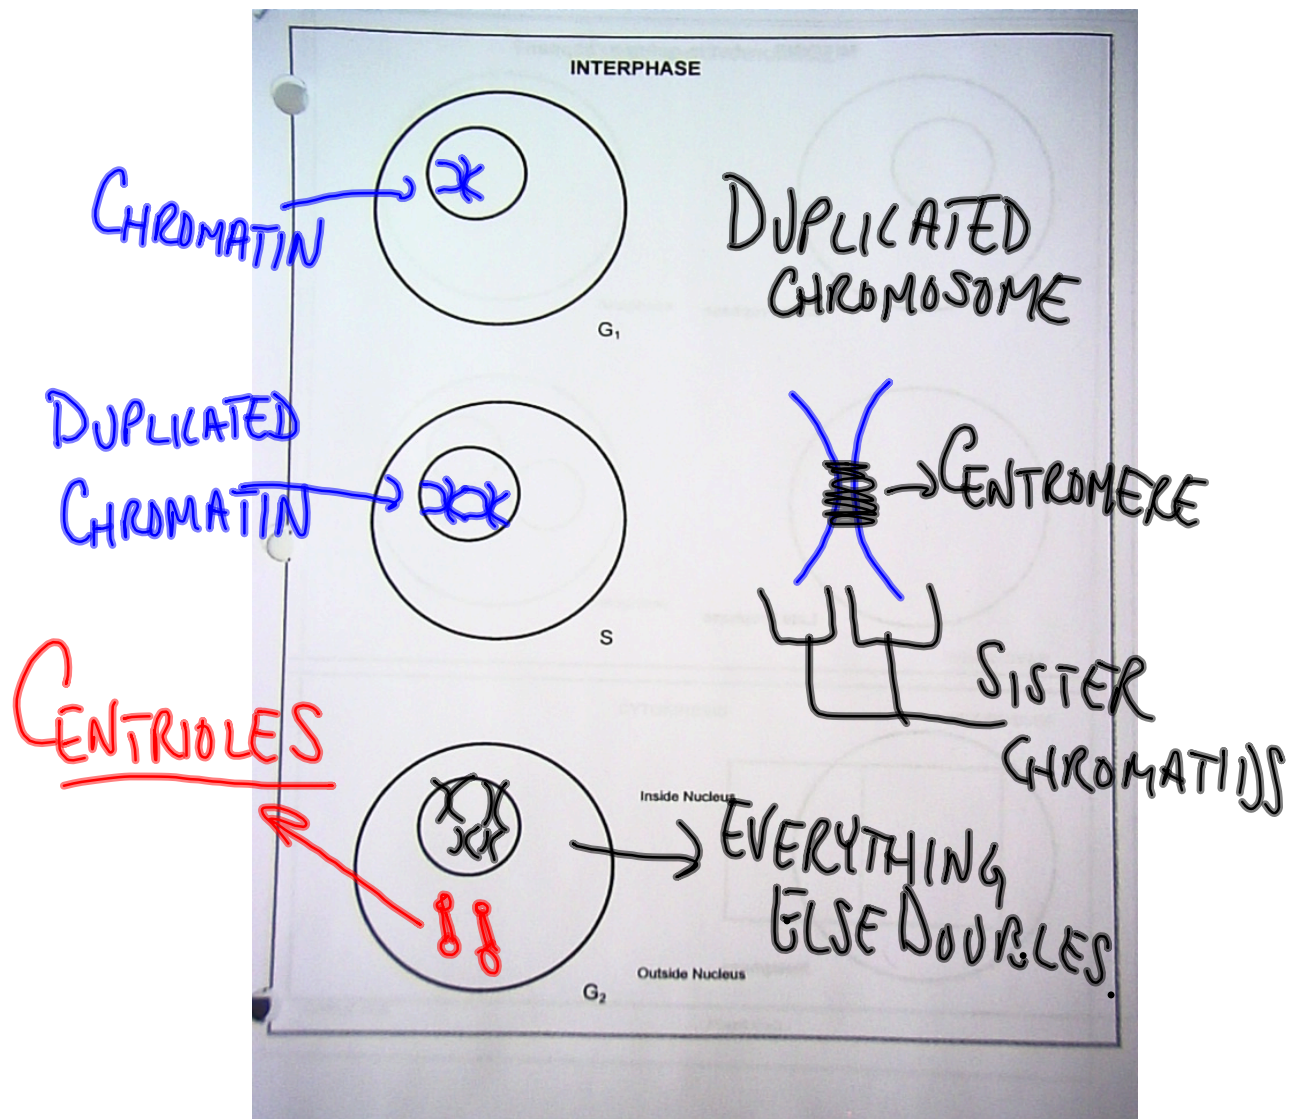 INTERPHASE
CHROMATIN
DUPLICATED
CHROMOSOME
G₁
DUPLICATED
CHROMATIN
CENTROMERE
S
SISTER
CHROMATIDS
CENTRIOLES
Inside Nucleus
EVERYTHING
ELSE DOUBLES.
Outside Nucleus
G₂